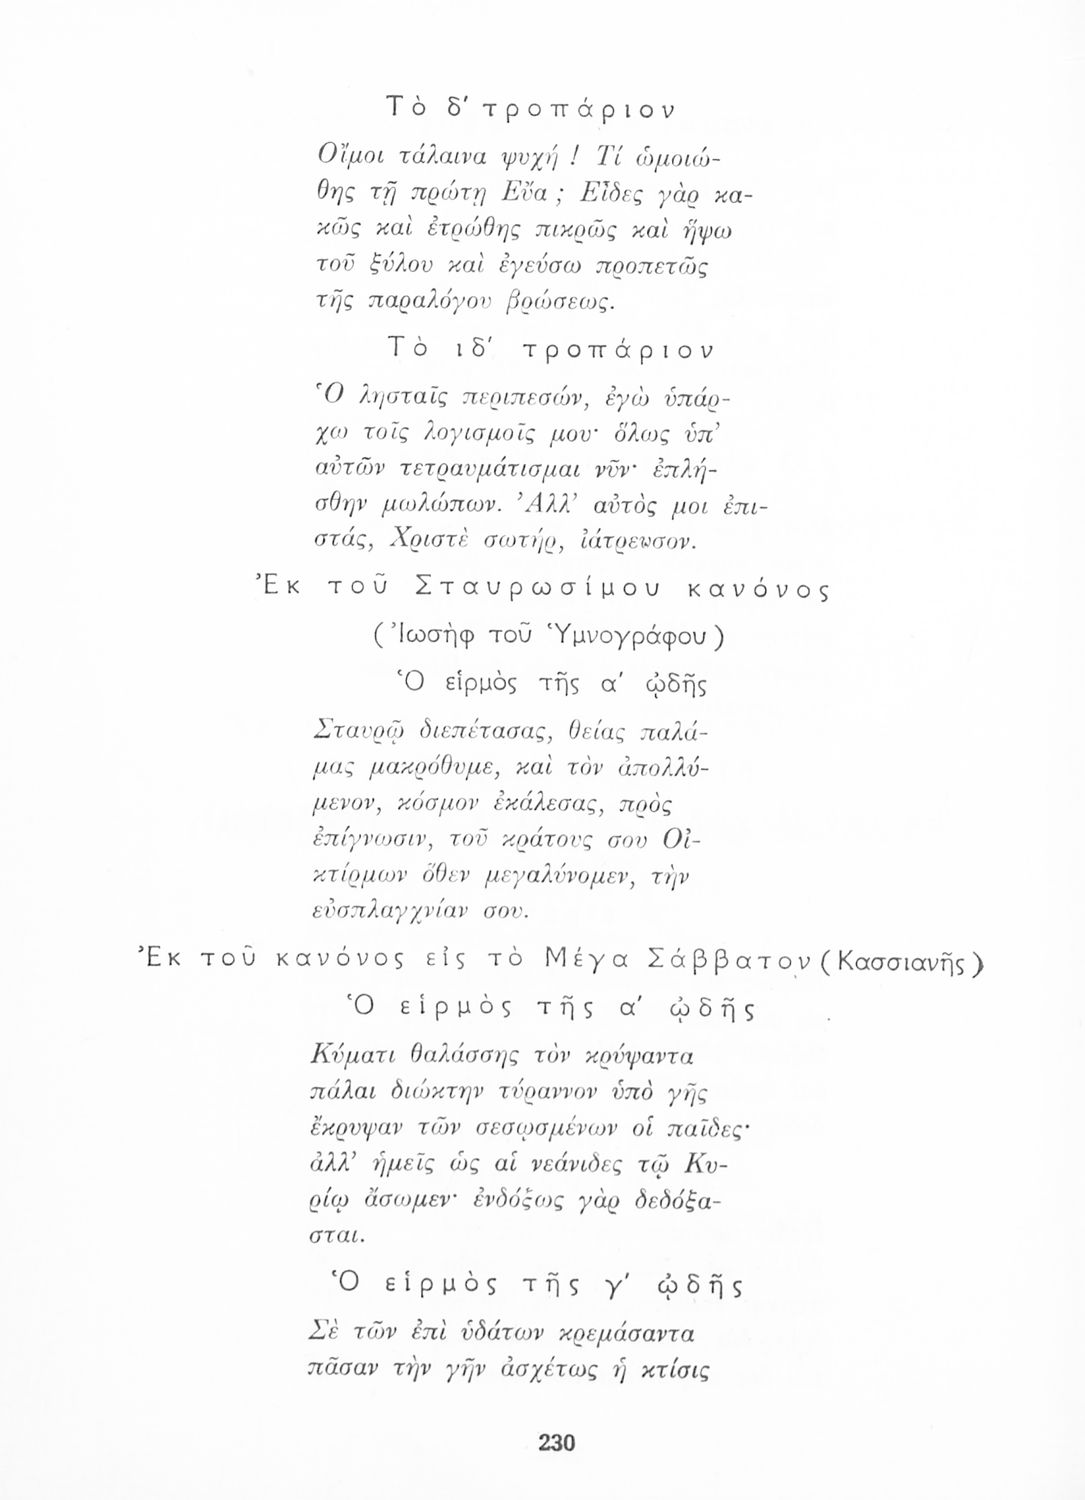 Τὸ δ' τροπάριον
Οἴμοι τάλαινα ψυχή ! Τί ὡμοιώ-
θης τῇ πρώτῃ Εὔα ; Εἶδες γὰρ κα-
κῶς καὶ ἐτρώθης πικρῶς καὶ ἥψω
τοῦ ξύλου καὶ ἐγεύσω προπετῶς
τῆς παραλόγου βρώσεως.
Τὸ ιδ' τροπάριον
Ὁ λῃσταῖς περιπεσών, ἐγὼ ὑπάρ-
χω τοῖς λογισμοῖς μου· ὅλως ὑπ'
αὐτῶν τετραυμάτισμαι νῦν· ἐπλή-
σθην μωλώπων. Ἀλλ' αὐτὸς μοι ἐπι-
στάς, Χριστὲ σωτήρ, ἰάτρευσον.
Ἐκ τοῦ Σταυρωσίμου κανόνος
(Ἰωσὴφ τοῦ Ὑμνογράφου)
Ὁ εἱρμὸς τῆς α' ᾠδῆς
Σταυρῷ διεπέτασας, θείας παλά-
μας μακρόθυμε, καὶ τὸν ἀπολλύ-
μενον, κόσμον ἐκάλεσας, πρὸς
ἐπίγνωσιν, τοῦ κράτους σου Οἰ-
κτίρμων ὅθεν μεγαλύνομεν, τὴν
εὐσπλαγχνίαν σου.
Ἐκ τοῦ κανόνος εἰς τὸ Μέγα Σάββατον (Κασσιανῆς)
Ὁ εἱρμὸς τῆς α' ᾠδῆς
Κύματι θαλάσσης τὸν κρύψαντα
πάλαι διώκτην τύραννον ὑπὸ γῆς
ἔκρυψαν τῶν σεσῳσμένων οἱ παῖδες·
ἀλλ' ἡμεῖς ὡς αἱ νεάνιδες τῷ Κυ-
ρίῳ ᾄσωμεν· ἐνδόξως γὰρ δεδόξα-
σται.
Ὁ εἱρμὸς τῆς γ' ᾠδῆς
Σὲ τῶν ἐπὶ ὑδάτων κρεμάσαντα
πᾶσαν τὴν γῆν ἀσχέτως ἡ κτίσις
230